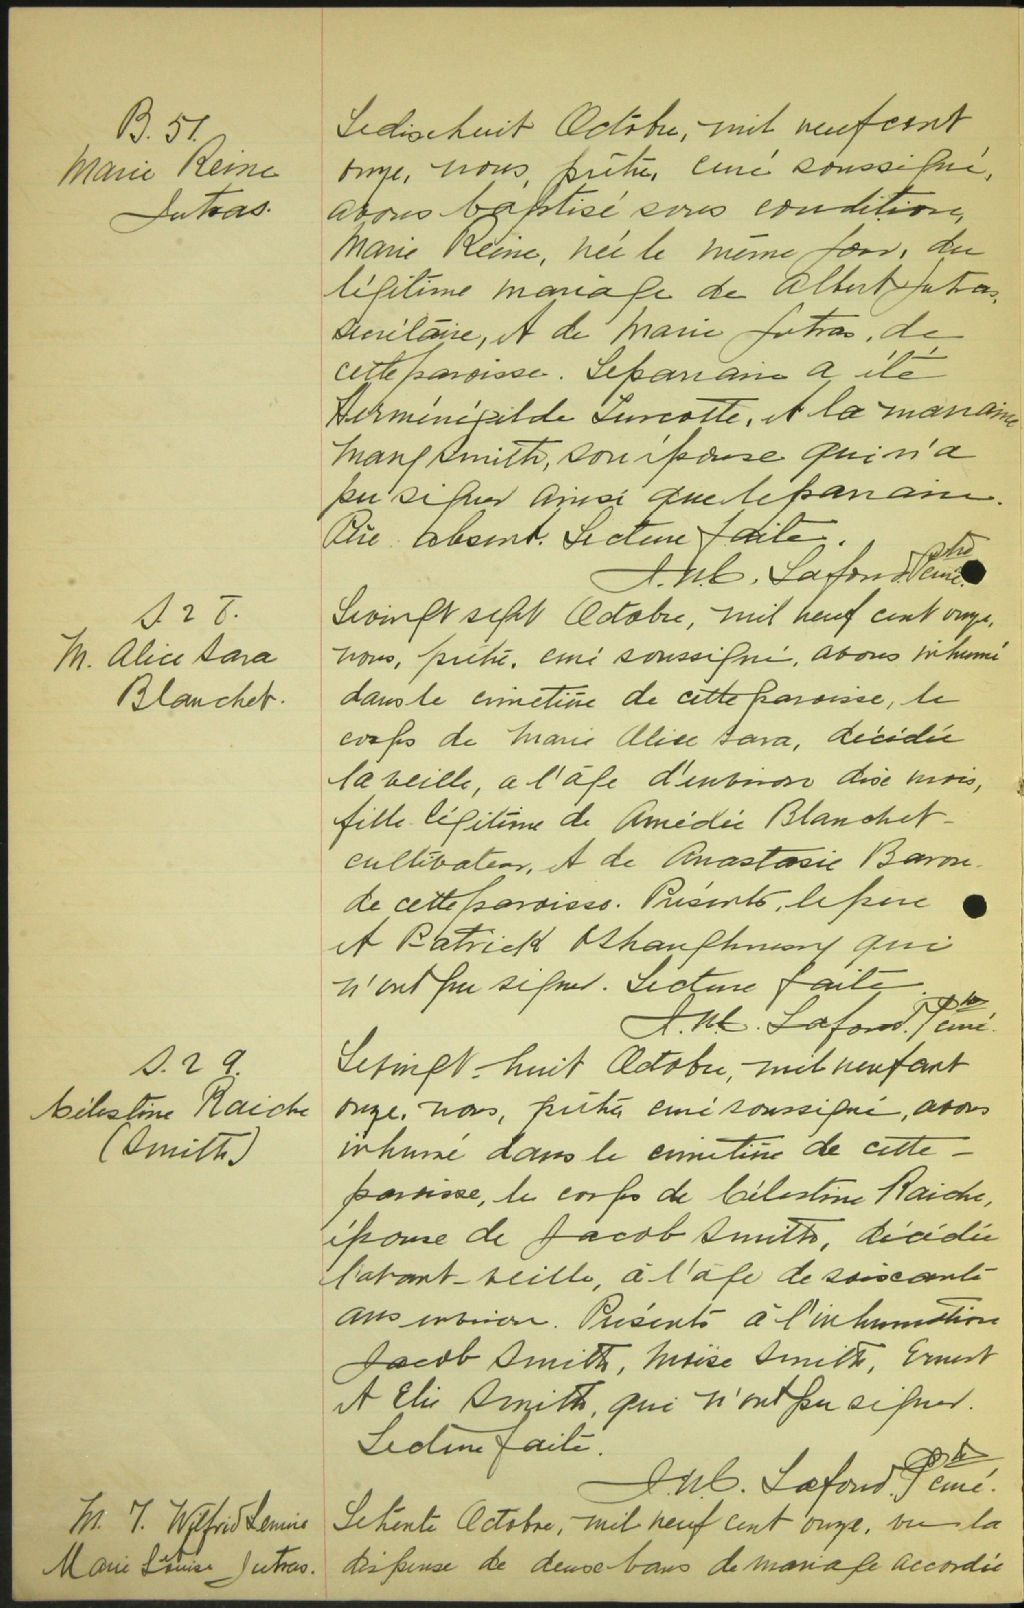 B. 51.
Marie Reine
Jutras.
Le dix huit Octobre, mil neuf cent
onze, nous, prêtre, curé soussigné,
avons baptisé sous condition,
Marie Reine, née le même jour, du
légitime mariage de Albert Jutras,
et de Marie Jutras, de
cette paroisse. Le parrain a été
Herménégilde Turcotte, et la marraine
Mary Smith, son épouse qui n'a
pu signer ainsi que le parrain.
Père absent. Lecture faite.
J.N.C. Lafond Ptre curé.
S. 28.
M. Alice Sara
Blanchet.
Le vingt sept Octobre, mil neuf cent onze,
nous, prêtre, curé soussigné, avons inhumé
dans le cimetière de cette paroisse, le
corps de Marie Alice Sara, décédée
la veille, a l'âge d'environ dix mois,
fille légitime de Amédée Blanchet
cultivateur, et de Anastasie Baron
de cette paroisse. Présents, le père
et Patrick OShaughnessy qui
n'ont pu signer. Lecture faite.
J.N.C. Lafond. Ptre curé.
S. 29.
Célestine Raiche
(Smith)
Le vingt-huit Octobre, mil neuf cent
onze, nous, prêtre curé soussigné, avons
inhumé dans le cimetière de cette
paroisse, le corps de Célestine Raiche,
épouse de Jacob Smith, décédée
l'avant-veille, à l'âge de soixante
ans environ. Présents à l'inhumation
Jacob Smith, Moïse Smith, Ernest
et Elie Smith, qui n'ont pu signer.
Lecture faite.
J.N.C. Lafond. Ptre curé.
M. 7. Wilfrid Lemire
Marie Louise Jutras.
Le trente Octobre, mil neuf cent onze, vu la
dispense de deux bans de mariage accordée